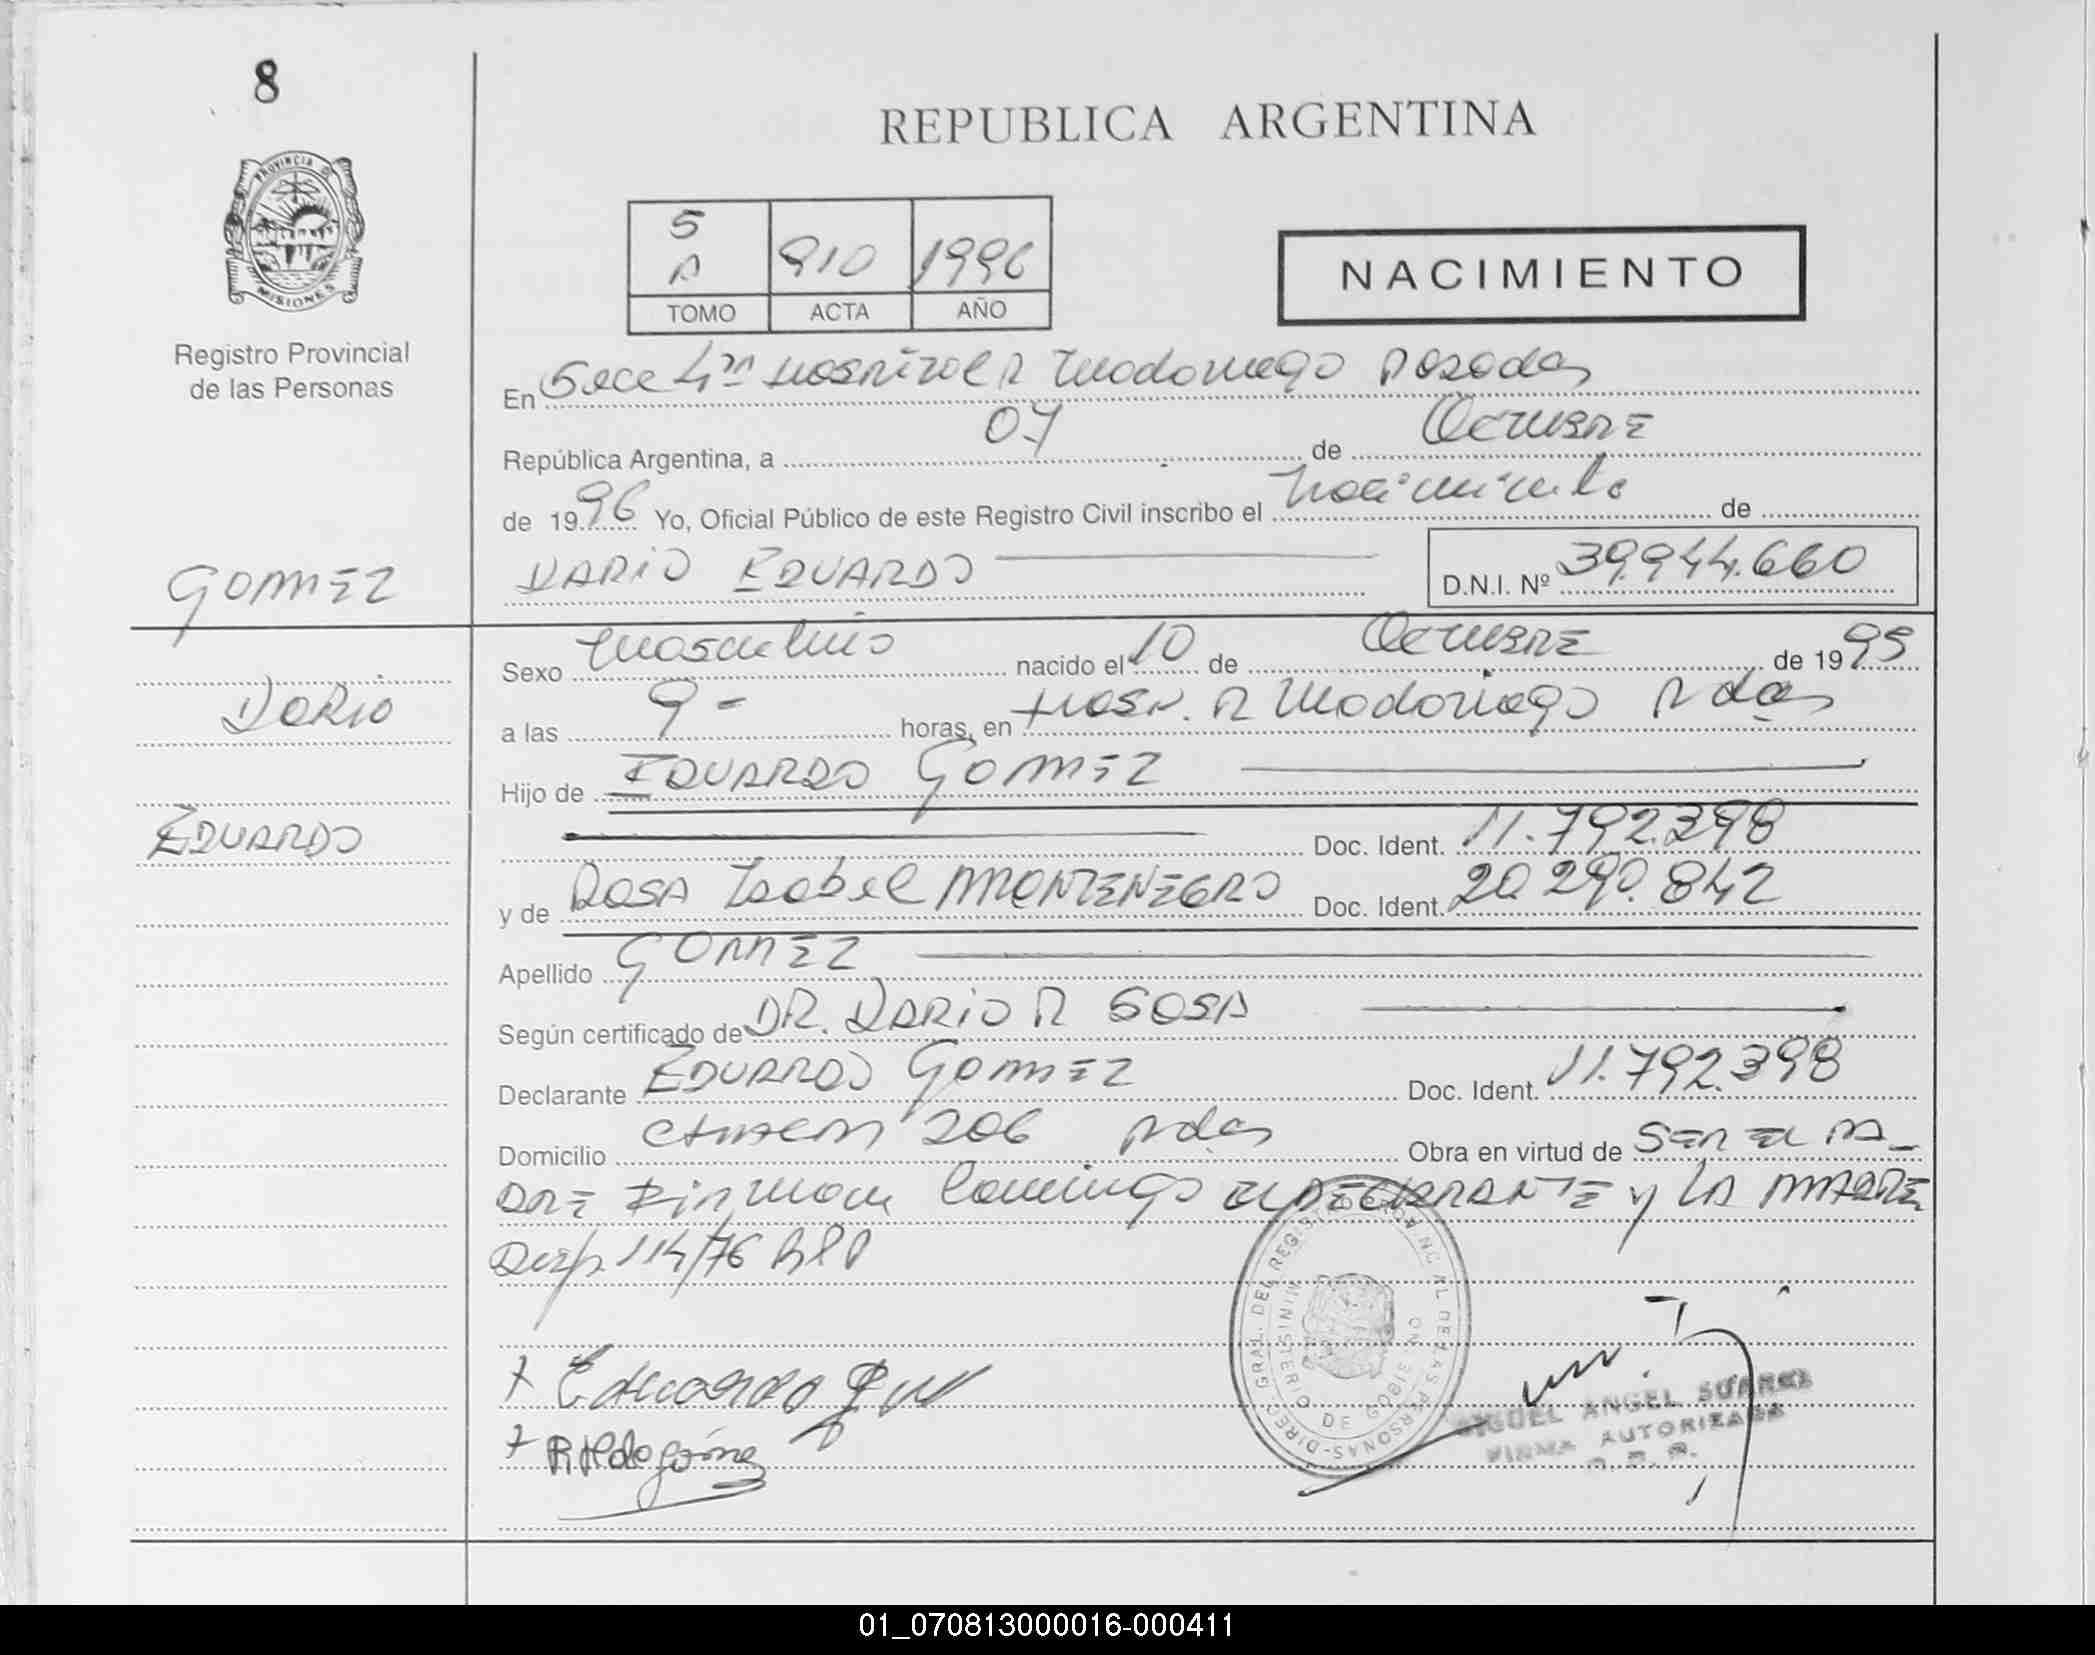 8
REPUBLICA ARGENTINA
PROVINCIA D
MISIONES
Registro Provincial
de las Personas
5
A 910 1996
TOMO ACTA AÑO
NACIMIENTO
En Secc 4ta Hospital R Madariaga Posadas
República Argentina, a 07 de Octubre
de 1996 Yo, Oficial Público de este Registro Civil inscribo el Nacimiento de
GOMEZ
DARIO EDUARDO D.N.I. Nº 39.944.660
Sexo Masculino nacido el 10 de Octubre de 1995
DARIO
a las 9 - horas, en Hosp. R Madariaga Pdas
Hijo de EDUARDO GOMEZ
EDUARDO
Doc. Ident. 11.792.398
y de ROSA Isabel MONTENEGRO Doc. Ident. 20.290.842
Apellido GOMEZ
Según certificado de DR. DARIO R SOSA
Declarante EDUARDO GOMEZ Doc. Ident. 11.792.398
Domicilio 206 Pdas Obra en virtud de SER EL PA-
DRE Firman Conmigo EL DECLARANTE y LA MADRE
Disp. 114/76
Eduardo
MIGUEL ANGEL SUAREZ
FIRMA AUTORIZADA
01_070813000016-000411